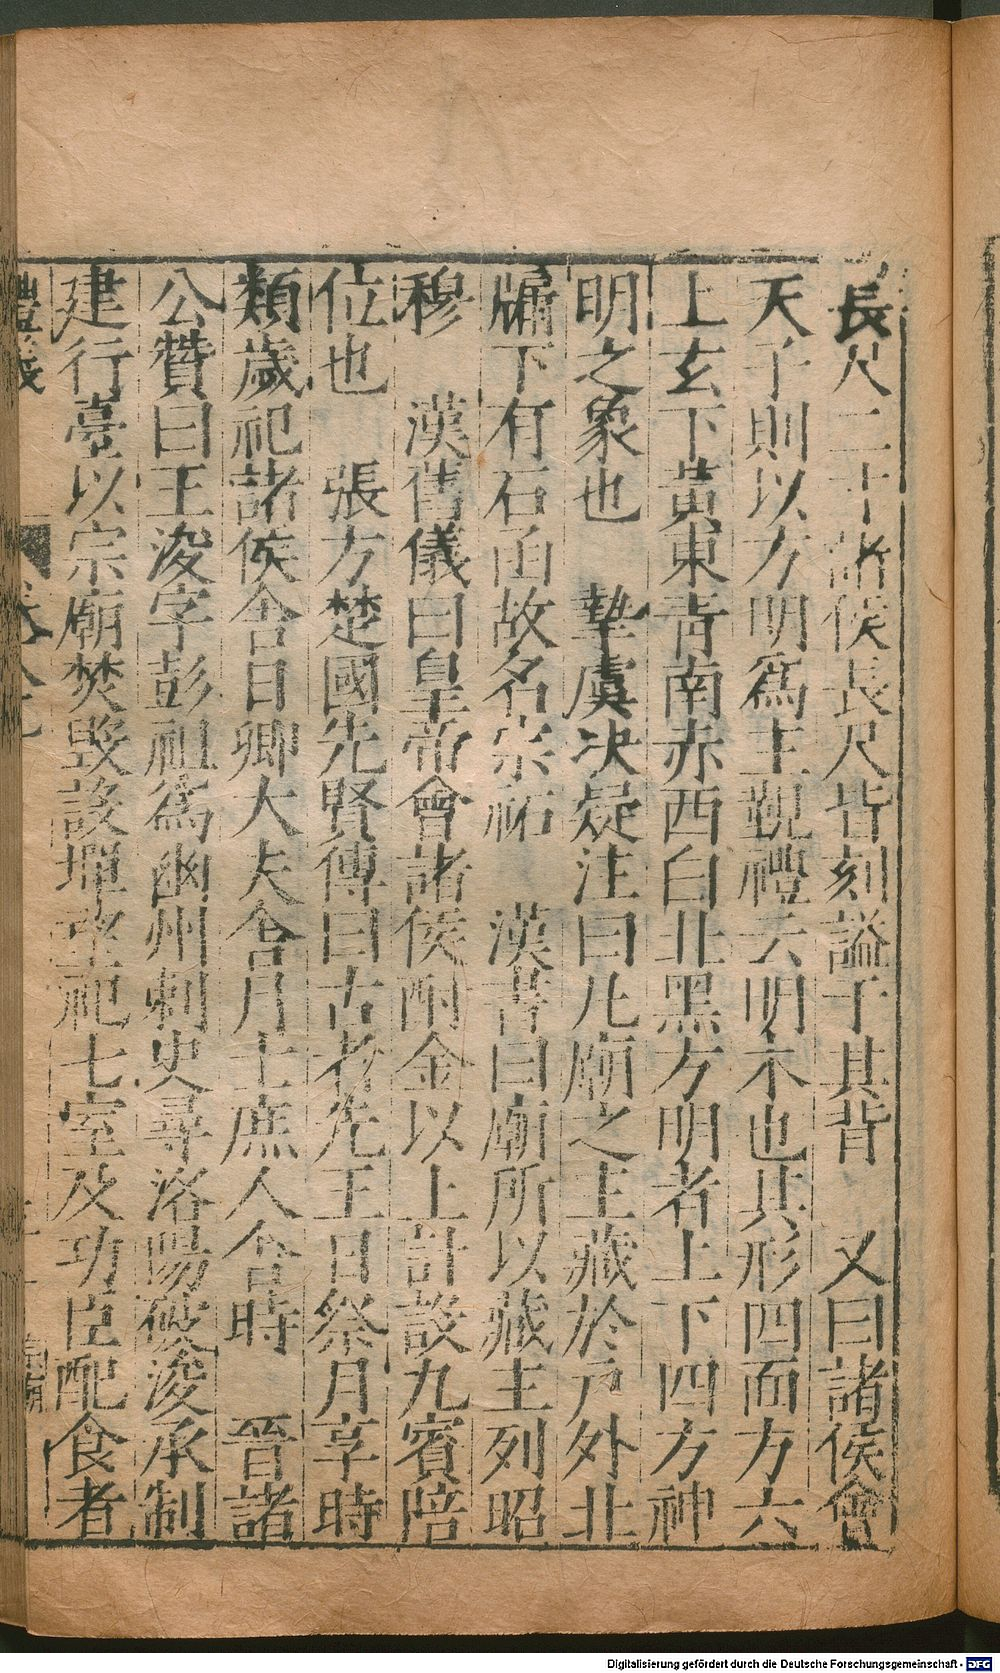 長尺二寸諸侯長尺皆刻謚于其背　又曰諸侯會
天子則以方明爲主覲禮云明木也其形四面方六
上玄下黃東青南赤西白北黑方明者上下四方神
明之象也　摯虞决疑注曰凡廟之主藏於戶外北
牖下有石函故名宗祏　漢書曰廟所以藏主列昭
穆　漢舊儀曰皇帝會諸侯酎金以上計設九賓陪
位也　張方楚國先賢傳曰古者先王日祭月享時
類歲祀諸侯舍日卿大夫舍月士庶人舍時　晉諸
公贊曰王浚字彭祖爲幽州刺史尋洛陽破浚承制
建行臺以宗廟焚毀設壇望祀七室及功臣配食者
宗廟
Digitalisierung gefördert durch die Deutsche Forschungsgemeinschaft - DFG